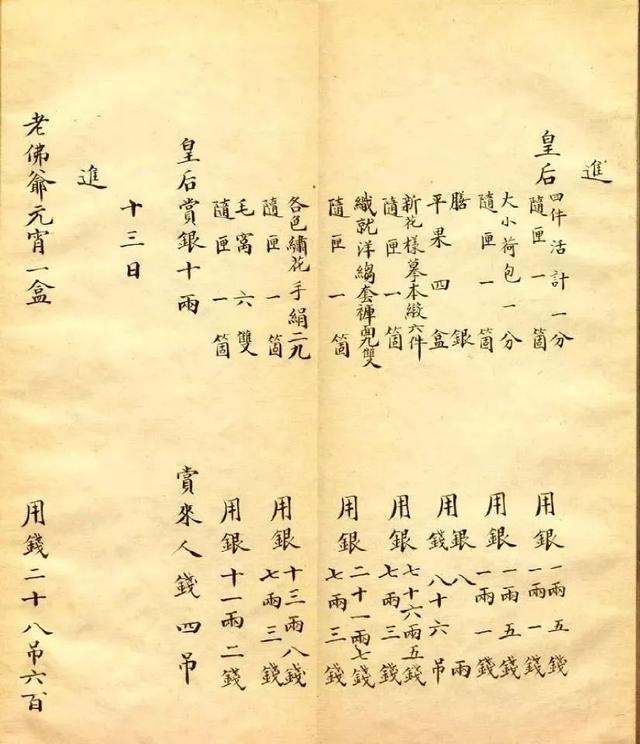 進
皇后
四件活計一分
隨匣一箇
用銀
一兩五錢
一兩一錢
大小荷包一分
隨匣一箇
用銀
一兩五錢
一兩一錢
膳銀
平果四盒
用
銀八兩
錢八十六吊
新花樣摹本緞六件
隨匣一箇
用銀
七十六兩五錢
七兩三錢
織就洋縐套褲面九雙
隨匣一箇
用銀
二十一兩七錢
七兩三錢
各色繡花手絹二九
隨匣一箇
用銀
十三兩八錢
七兩三錢
毛窩六雙
隨匣一箇
用銀十一兩二錢
皇后賞銀十兩
賞來人錢四吊
十三日
進
老佛爺元宵一盒
用錢二十八吊六百